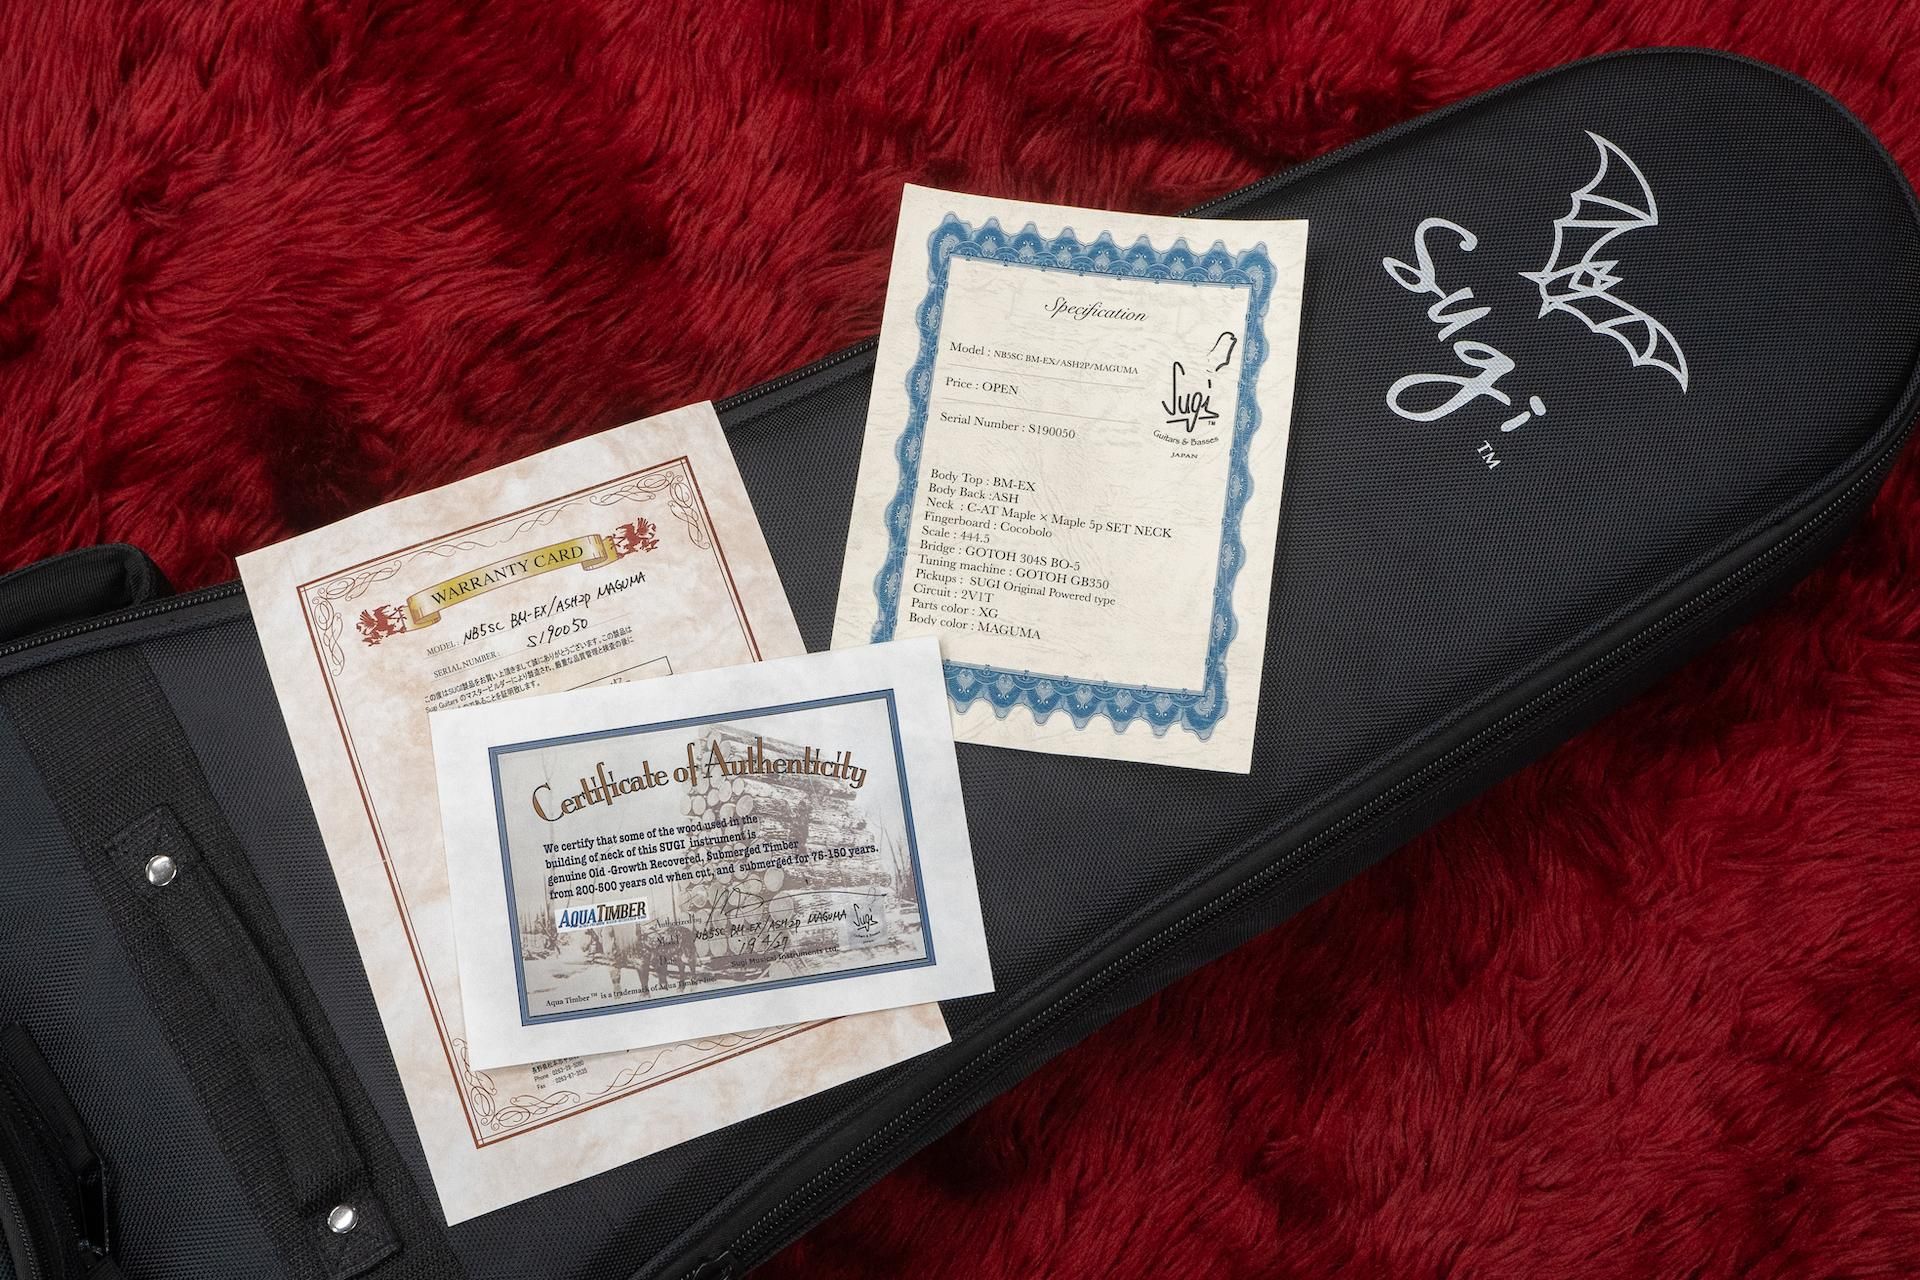 Sugi
TM
Specification
Model : NB5SC BM-EX/ASH2P/MAGUMA
Price : OPEN
Serial Number : S190050
Sugi
TM
Guitars & Basses
JAPAN
Body Top : BM-EX
Body Back :ASH
Neck : C-AT Maple × Maple 5p SET NECK
Fingerboard : Cocobolo
Scale : 444.5
Bridge : GOTOH 304S BO-5
Tuning machine : GOTOH GB350
Pickups : SUGI Original Powered type
Circuit : 2V1T
Parts color : XG
Body color : MAGUMA
WARRANTY CARD
MODEL : NB5SC BM-EX/ASH2P MAGUMA
SERIAL NUMBER : S190050
この度はSUGI製品をお買い上げ頂きまして誠にありがとうございます。この製品は
Sugi Guitars のマスタービルダーにより製造され、厳重な品質管理と検査の後に
であることを証明致します。
Phone 0263-
Fax 0263-87-3525
Certificate of Authenticity
We certify that some of the wood used in the
building of neck of this SUGI instrument is
genuine Old -Growth Recovered, Submerged Timber
from 200-500 years old when cut, and submerged for 75-150 years.
AQUATIMBER
Authorized by
Model NB5SC BM-EX/ASH2P MAGUMA
Date '19 4/27
Sugi
Sugi Musical Instruments Ltd.
Aqua Timber™ is a trademark of Aqua Timber Inc.